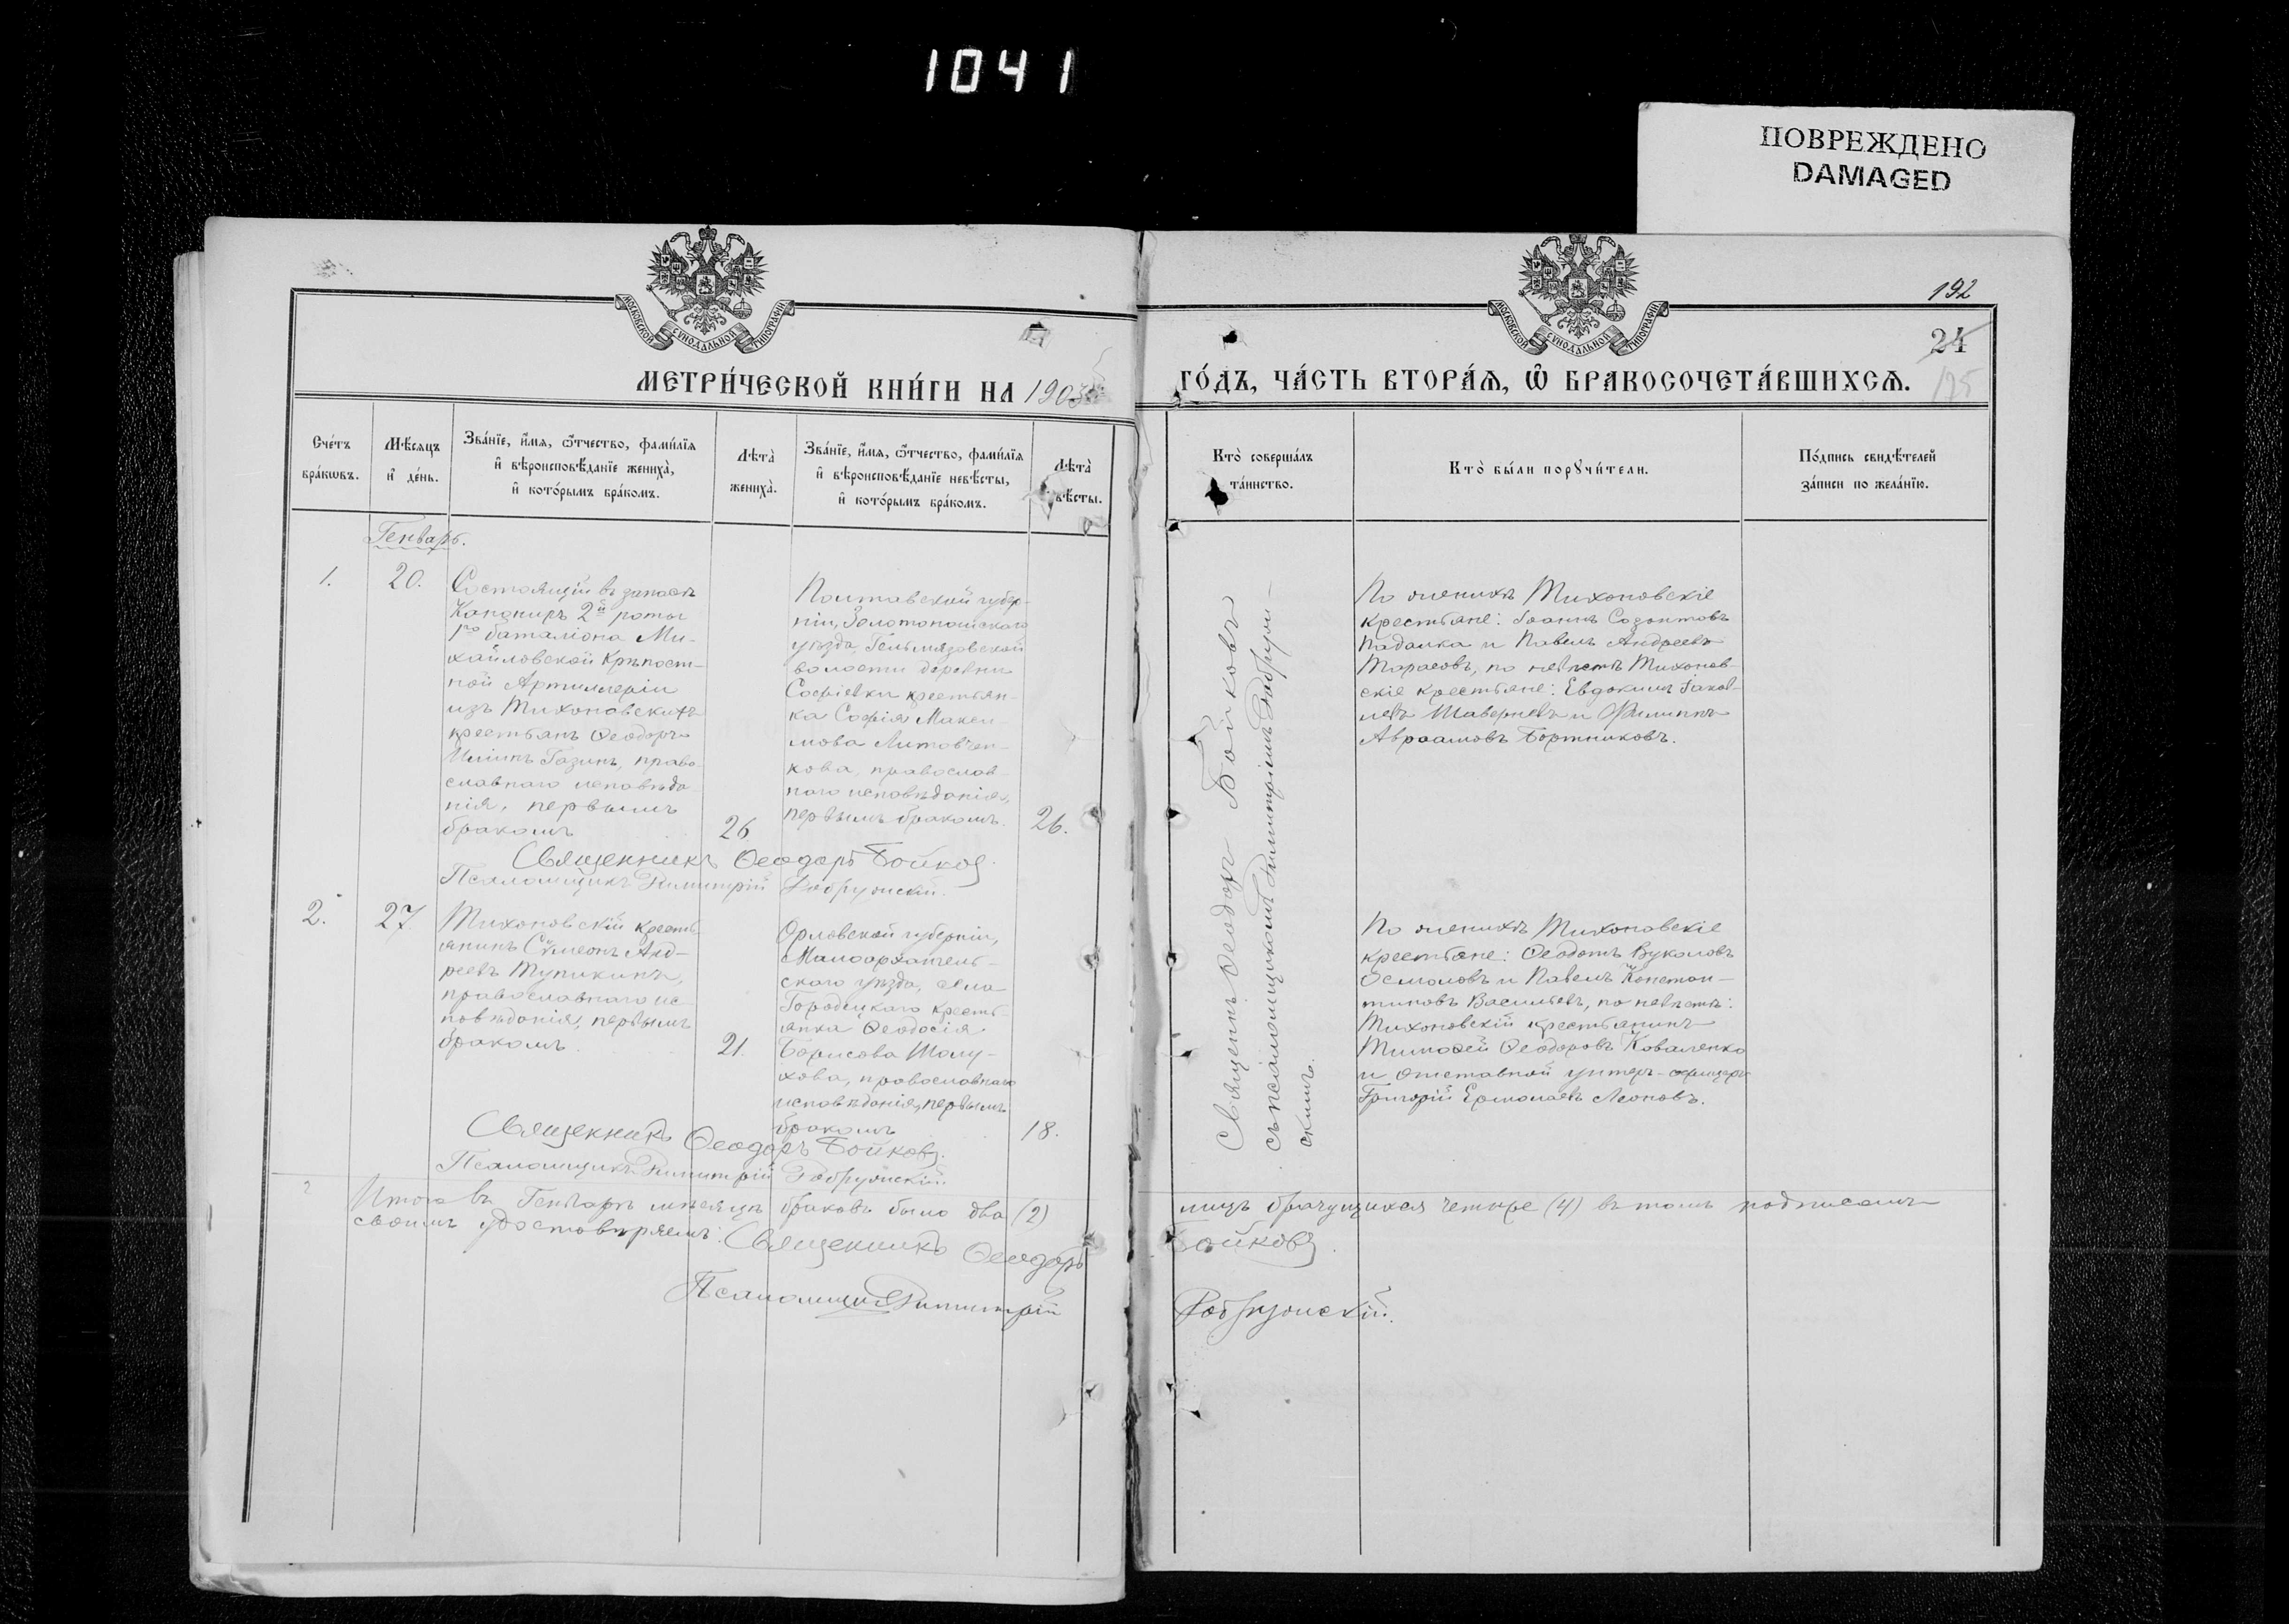 1041
ПОВРЕЖДЕНО
DAMAGED
МОСКОВСКОЙ СѴНОДАЛЬНОЙ ТИПОГРАФІИ
МОСКОВСКОЙ СѴНОДАЛЬНОЙ ТИПОГРАФІИ
192
24
175
МЕТРИ́ЧЕСКОЙ КНИ́ГИ НА 1903
ГО́ДЪ, ЧА́СТЬ ВТОРА́Ѧ, Ѽ БРАКОСОЧЕТА́ВШИХСѦ.
Сче́тъ
бра́кѡвъ.
Мѣ́сяцъ
и҆ де́нь.
Зва́нїе, и҆́мя, ѻ҆́тчество, фами́лїя
и҆ вѣроисповѣ́данїе жениха̀,
и҆ кото́рымъ бра́комъ.
Лѣта̀
жениха̀.
Зва́нїе, и҆́мя, ѻ҆́тчество, фами́лїя
и҆ вѣроисповѣ́данїе невѣ́сты,
и҆ кото́рымъ бра́комъ.
Лѣта̀
вѣ́сты.
Кто̀ соверша́лъ
та́инство.
Кто̀ бы́ли порꙋчи́тели.
По́дпись свидѣ́телей
за́писи по жела́нїю.
Генварь.
1.
20.
Состоящій въ запасѣ
Канониръ 2й роты
1го баталіона Ми-
хайловской Крѣпост-
ной Артиллеріи
изъ Тихоновскихъ
крестьянъ Ѳеодоръ
Ильинъ Газинъ, право-
славнаго исповѣда
нія, первымъ
бракомъ
26
Полтавской губер-
ніи, Золотоношскаго
уѣзда, Гельмязовской
волости деревни
Софіевки крестьян-
ка Софія Макси-
мова Литовчен-
кова, православ-
наго исповѣданія,
первымъ бракомъ.
26.
Священникъ Ѳеодоръ Бойковъ.
Псаломщикъ Димитрій
Священникъ Ѳеодоръ Бойковъ
съ псаломщикомъ Димитріемъ
скимъ.
По женихѣ Тихоновскіе
крестьяне: Іоаннъ Созонтовъ
Падалка и Павелъ Андреевъ
Тарасовъ, по невѣстѣ Тихонов-
скіе крестьяне: Евдокимъ Іаков-
левъ Шаверневъ и Филиппъ
Авраамовъ Бортниковъ.
2.
27.
Тихоновскій кресть-
янинъ Сумеонъ Анд-
реевъ Тупикинъ,
православнаго ис
повѣданія, первымъ
бракомъ
21.
Орловской губерніи,
Малоархангель-
скаго уѣзда, села
Городецкаго кресть-
янка Ѳеодосія
Борисова Шолу-
хова, православнаго
исповѣданія, первымъ
бракомъ
18.
Священникъ Ѳеодоръ Бойковъ.
Псаломщикъ Димитрій
По женихѣ Тихоновскіе
крестьяне: Ѳеодотъ Вукаловъ
Осмоловъ и Павелъ Констан-
тиновъ Васильевъ, по невѣстѣ:
Тихоновскій крестьянинъ
Тимоѳей Ѳеодоровъ Коваленко
и отставной унтеръ-офицеръ
Григорій Ермолаевъ Леоновъ.
Итого въ Генварѣ мѣсяцѣ браковъ было два (2)
лицъ брачущихся четыре (4) въ томъ подписомъ
своимъ удостовѣряемъ: Священникъ Ѳеодоръ
Бойковъ.
Псаломщикъ Димитрій